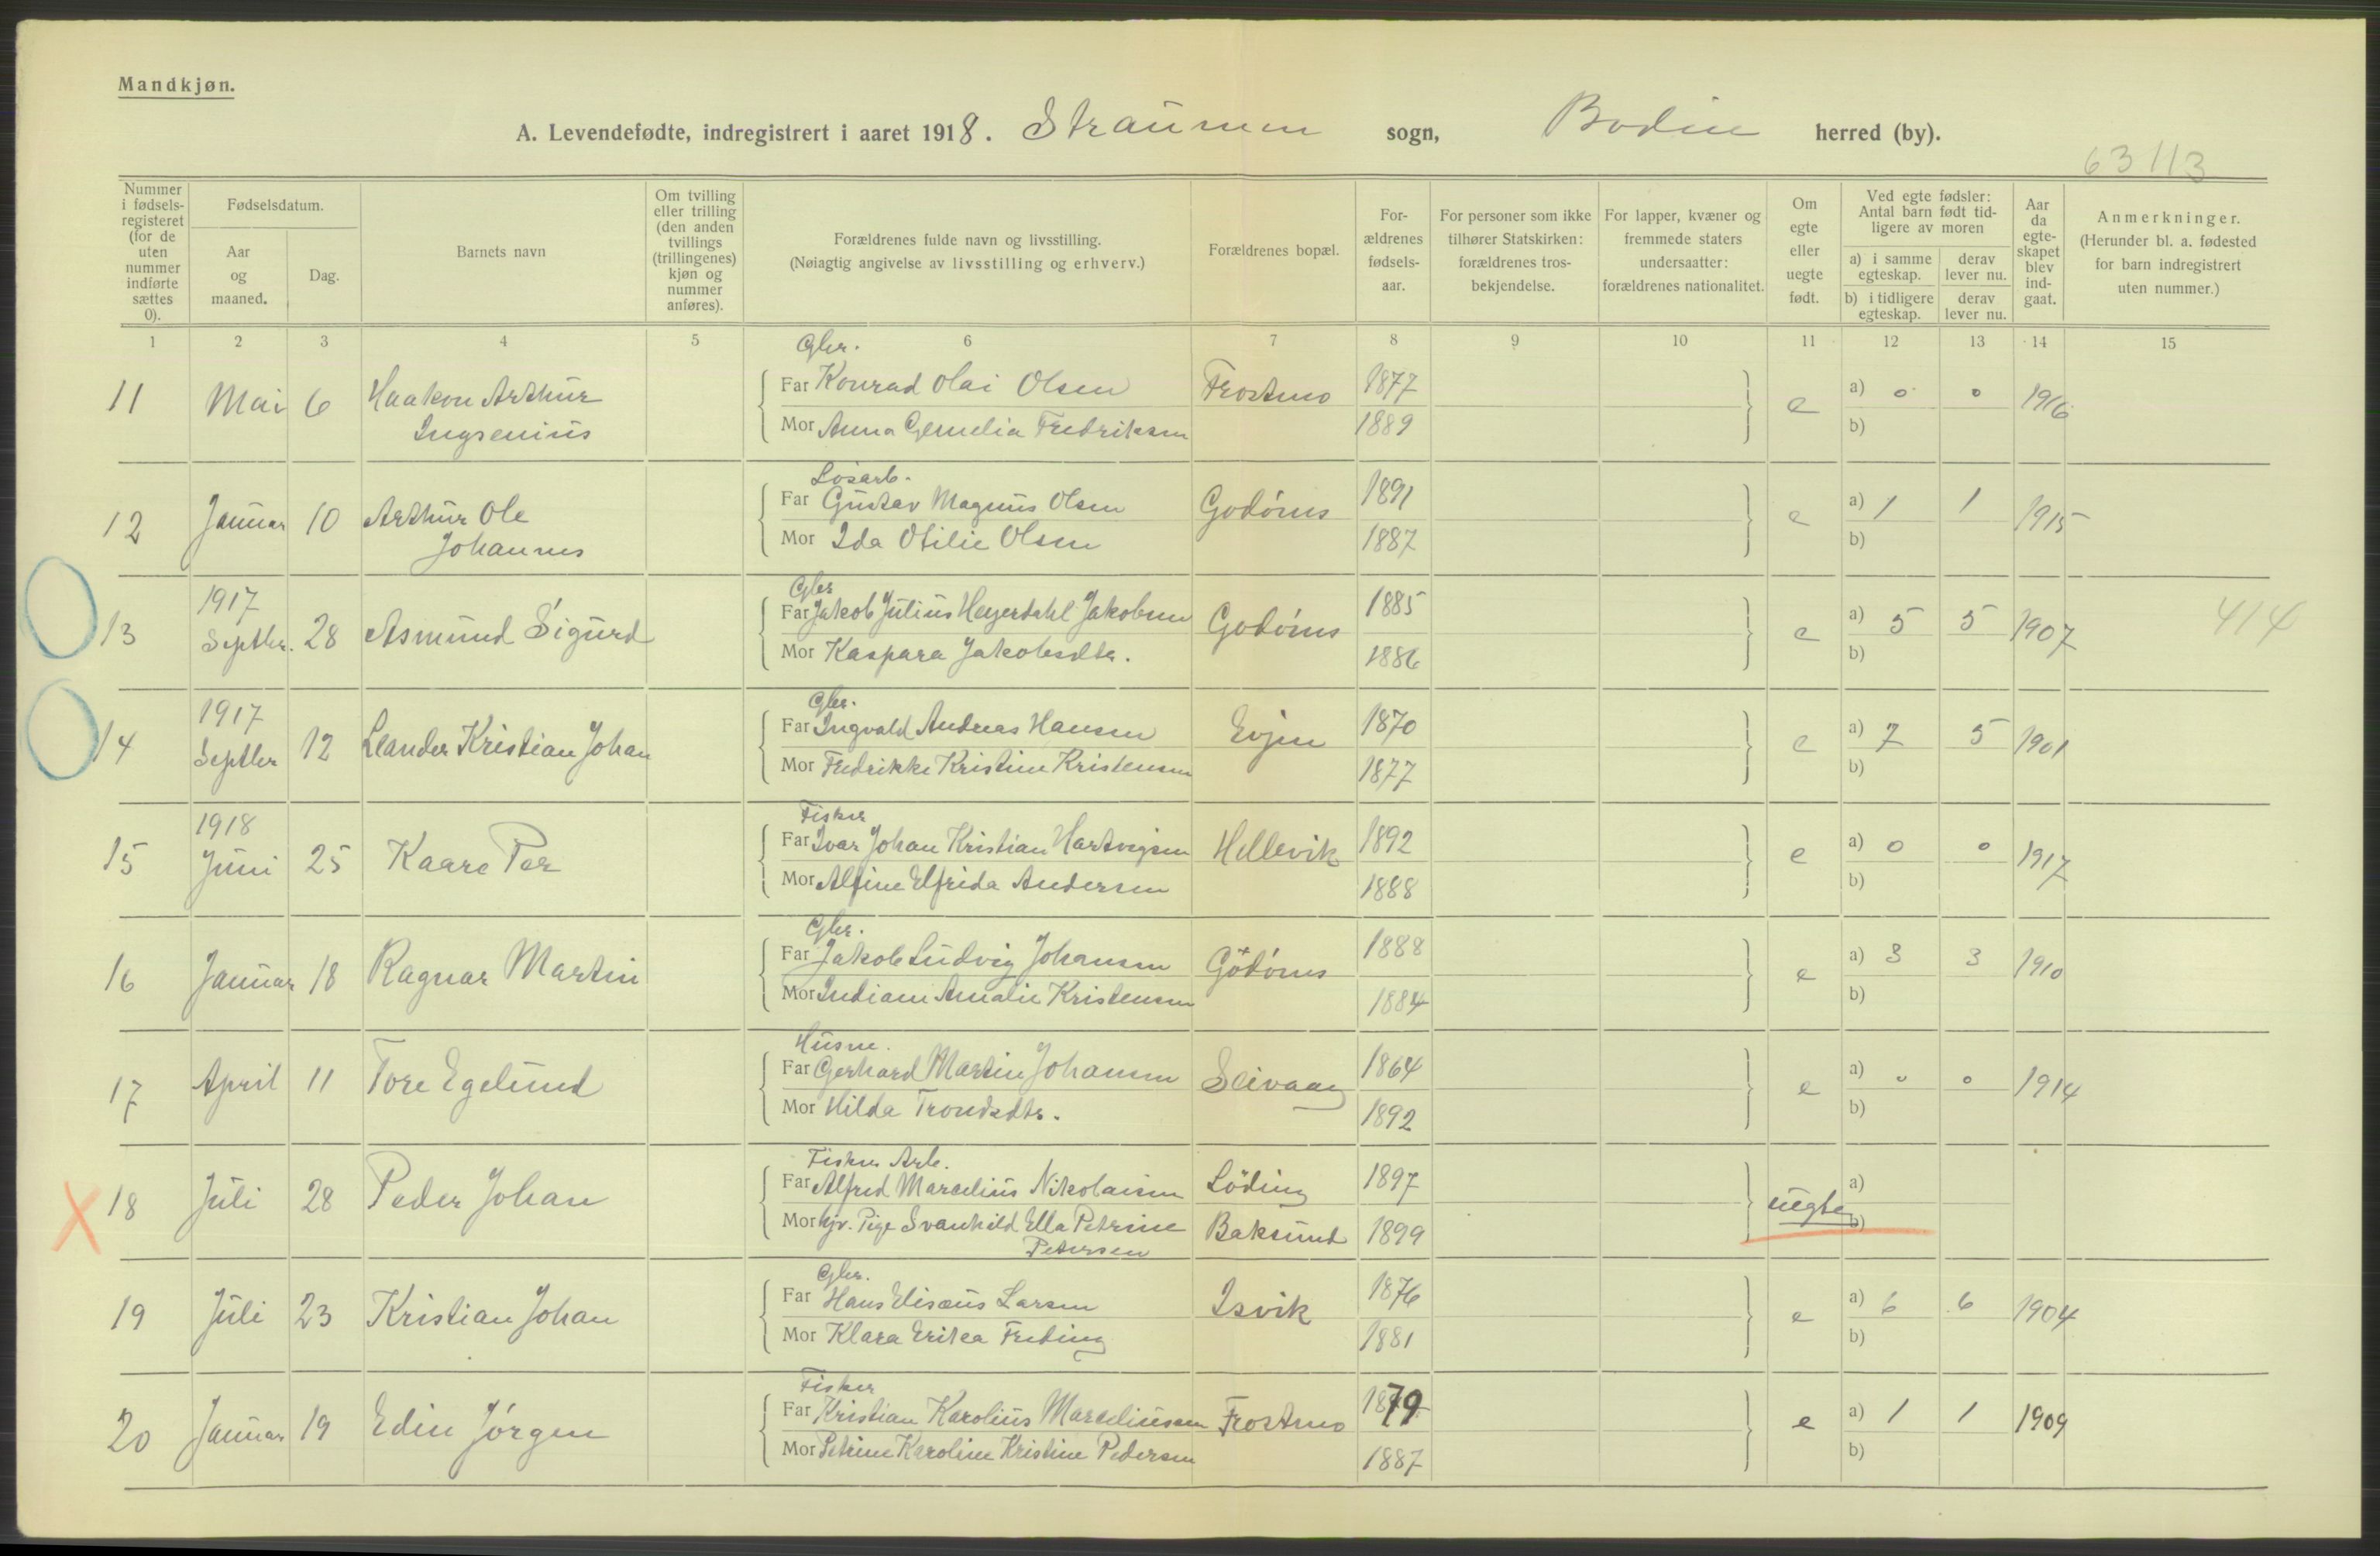 Mandkjøn.
A. Levendefødte, indregistrert i aaret 1918. Straumen sogn, Bodin herred (by).
63113
Nummer i fødsels-registeret (for de uten nummer indførte sættes 0).
Fødselsdatum.
Aar og maaned.
Dag.
Barnets navn
Om tvilling eller trilling (den anden tvillings (trillingenes) kjøn og nummer anføres).
Forældrenes fulde navn og livsstilling.
(Nøiagtig angivelse av livsstilling og erhverv.)
Forældrenes bopæl.
For-ældrenes fødsels-aar.
For personer som ikke tilhører Statskirken: forældrenes tros-bekjendelse.
For lapper, kvæner og fremmede staters undersaatter: forældrenes nationalitet.
Om egte eller uegte født.
Ved egte fødsler: Antal barn født tid-ligere av moren
a) i samme egteskap.
derav lever nu.
b) i tidligere egteskap.
derav lever nu.
Aar da egte-skapet blev ind-gaat.
Anmerkninger.
(Herunder bl. a. fødested for barn indregistrert uten nummer.)
1 2 3 4 5 6 7 8 9 10 11 12 13 14 15
Gbr.
11 Mai 6 Haakon Arthur Far Konrad Olai Olsen Frostmo 1877 e a) 0 0 1916
Ingsenius Mor Anna Cornelia Fredriksen 1889 b)
Løsarb.
12 Januar 10 Arthur Ole Far Gustav Magnus Olsen Godönes 1891 e a) 1 1 1915
Johannes Mor Ida Otilie Olsen 1887 b)
1917 Gbr
13 Septbr. 28 Asmund Sigurd Far Jakob Julius Heyerdahl Jakobsen Godönes 1885 e a) 5 5 1907 414
Mor Kaspara Jakobsdtr. 1886 b)
1917 Gbr.
14 Septbr 12 Leander Kristian Johan Far Ingvald Andreas Hansen Evjen 1870 e a) 7 5 1901
Mor Fredrikke Kristine Kristensen 1877 b)
1918 Fisker
15 Juni 25 Kaare Per Far Ivar Johan Kristian Hartvigsen Hellevik 1892 e a) 0 0 1917
Mor Alfine Elfrida Andersen 1888 b)
Gbr.
16 Januar 18 Ragnar Martin Far Jakob Ludvig Johansen Godönes 1888 e a) 3 3 1910
Mor Indiane Amalie Kristensen 1884 b)
Husm.
17 April 11 Tore Egelund Far Gerhard Martin Johansen Seivaag 1864 e a) 0 0 1914
Mor Hilda Trondsdtr. 1892 b)
Fisker Arb.
X 18 Juli 28 Peder Johan Far Alfred Marcelius Nikolaisen Löding 1897 uegte a)
Mor hjv. Pige Svanhild Ella Petrine Baksund 1899 b)
Petersen
Gbr.
19 Juli 23 Kristian Johan Far Hans Elisæus Larsen Isvik 1876 e a) 6 6 1904
Mor Klara Erikea Freding 1881 b)
Fisker
20 Januar 19 Edin Jörgen Far Kristian Karolius Marceliussen Frostmo 1879 e a) 1 1 1909
Mor Petrine Karoline Kristine Pedersen 1887 b)